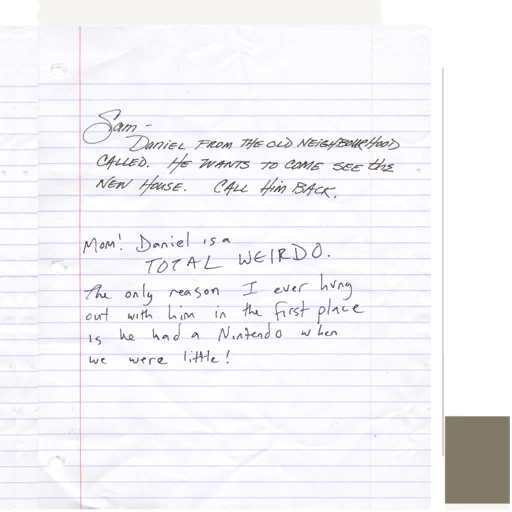 Sam -
Daniel FROM THE OLD NEIGHBOURHOOD
CALLED. HE WANTS TO COME SEE the
NEW HOUSE. CALL HIM BACK.
Mom! Daniel is a
TOTAL WEIRDO.
The only reason I ever hung
out with him in the first place
is he had a Nintendo when
we were little!